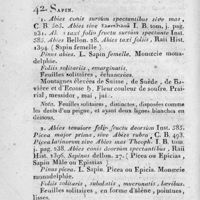 42. SAPIN.
1. Abies conis sursum spectantibus sive mas,
C. B. 505. Abies vive I. B. tom. I. pag.
231. Al. 1 taxi folio fructu sursum spectante Inst.
585. Abies Bellon. 28. Abies taxi foliis, Raii Hist.
1394. ( Sapin femelle )
Pinus abies. L. Sapin femelle. Monœcie mona-
delphie.
Foliis solitariis, emarginatis.
Feuilles solitaires, échancrées.
Montagnes d'Ecosse, de Suède, de Ba-
vière et d'Ecosse ♄. Fleur couleur de soufre. Prai-
rial, messidor, mai, juin.
Nota. Feuilles solitaires, distinctes, disposées comme
les dents d'un peigne, et ayant deux lignes blanches en
dessous.
2. Abies tenuiore folio fructu deorsum Inst. 585.
Picea major prima, sive Abies rubra, C. B. 493.
Picea latinorum sive Abies mas Theoph. I. B. tom.
I. pag. 238. Abies mas deorsum spectantibus, Raii
Hist. 1396. Sapinus Bellon. 27. ( Picea ou Epicias
Sapin Mâle ou Epistias )
Pinus picea. L. Sapin Picea ou Epicia. Monœcie
monadelphie.
Foliis solitariis, subulatis, mucronatis, lævibus.
Feuilles solitaires, en forme d'alêne, pointues,
lisses.